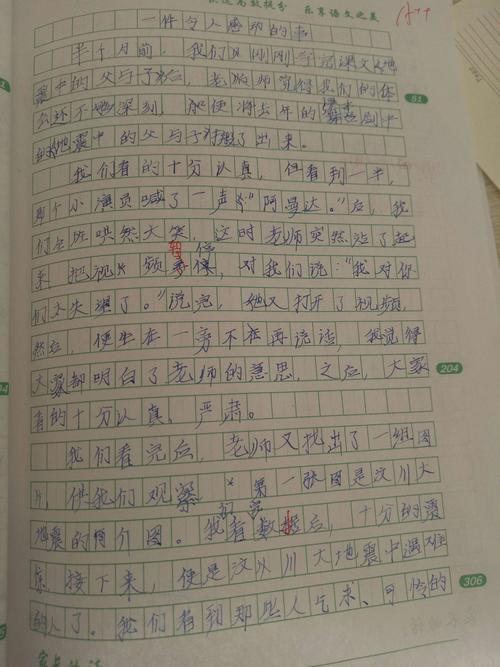 乐享语文之美
一件令人感动的事
半个月前，我们刚刚学完课文《地
震中的父与子》后，老师觉得我们的体
会还不够深刻，便将去年的课本剧中
的《地震中的父与子》找了出来。
我们看的十分认真，但看到一半，
那个小演员喊了一声“阿曼达。”后，我
们全班哄然大笑，这时老师突然站了起
来，把视频暂停，对我们说：“我对你
们太失望了。”说完，她又打开了视频，
然后，便坐在一旁不在再说话，我觉得
大家都明白了老师的意思，之后，大家
看的十分认真、严肃。
204
我们看完后，老师又找出了一组图
片，供我们观察。第一张图是汶川大
地震的简介图。我们看完数据后，十分的震
惊，接下来，便是汶川大地震中遇难
的人了。我们看到那些人乞求、可怜的
306